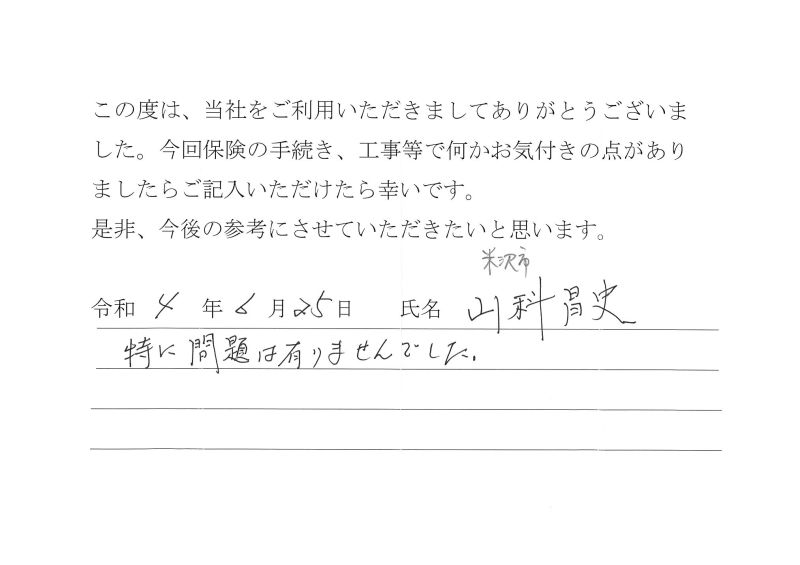 この度は、当社をご利用いただきましてありがとうございま
した。今回保険の手続き、工事等で何かお気付きの点があり
ましたらご記入いただけたら幸いです。
是非、今後の参考にさせていただきたいと思います。
米沢市
令和 4 年 6 月 25 日 氏名 山科昌史
特に問題は有りませんでした.